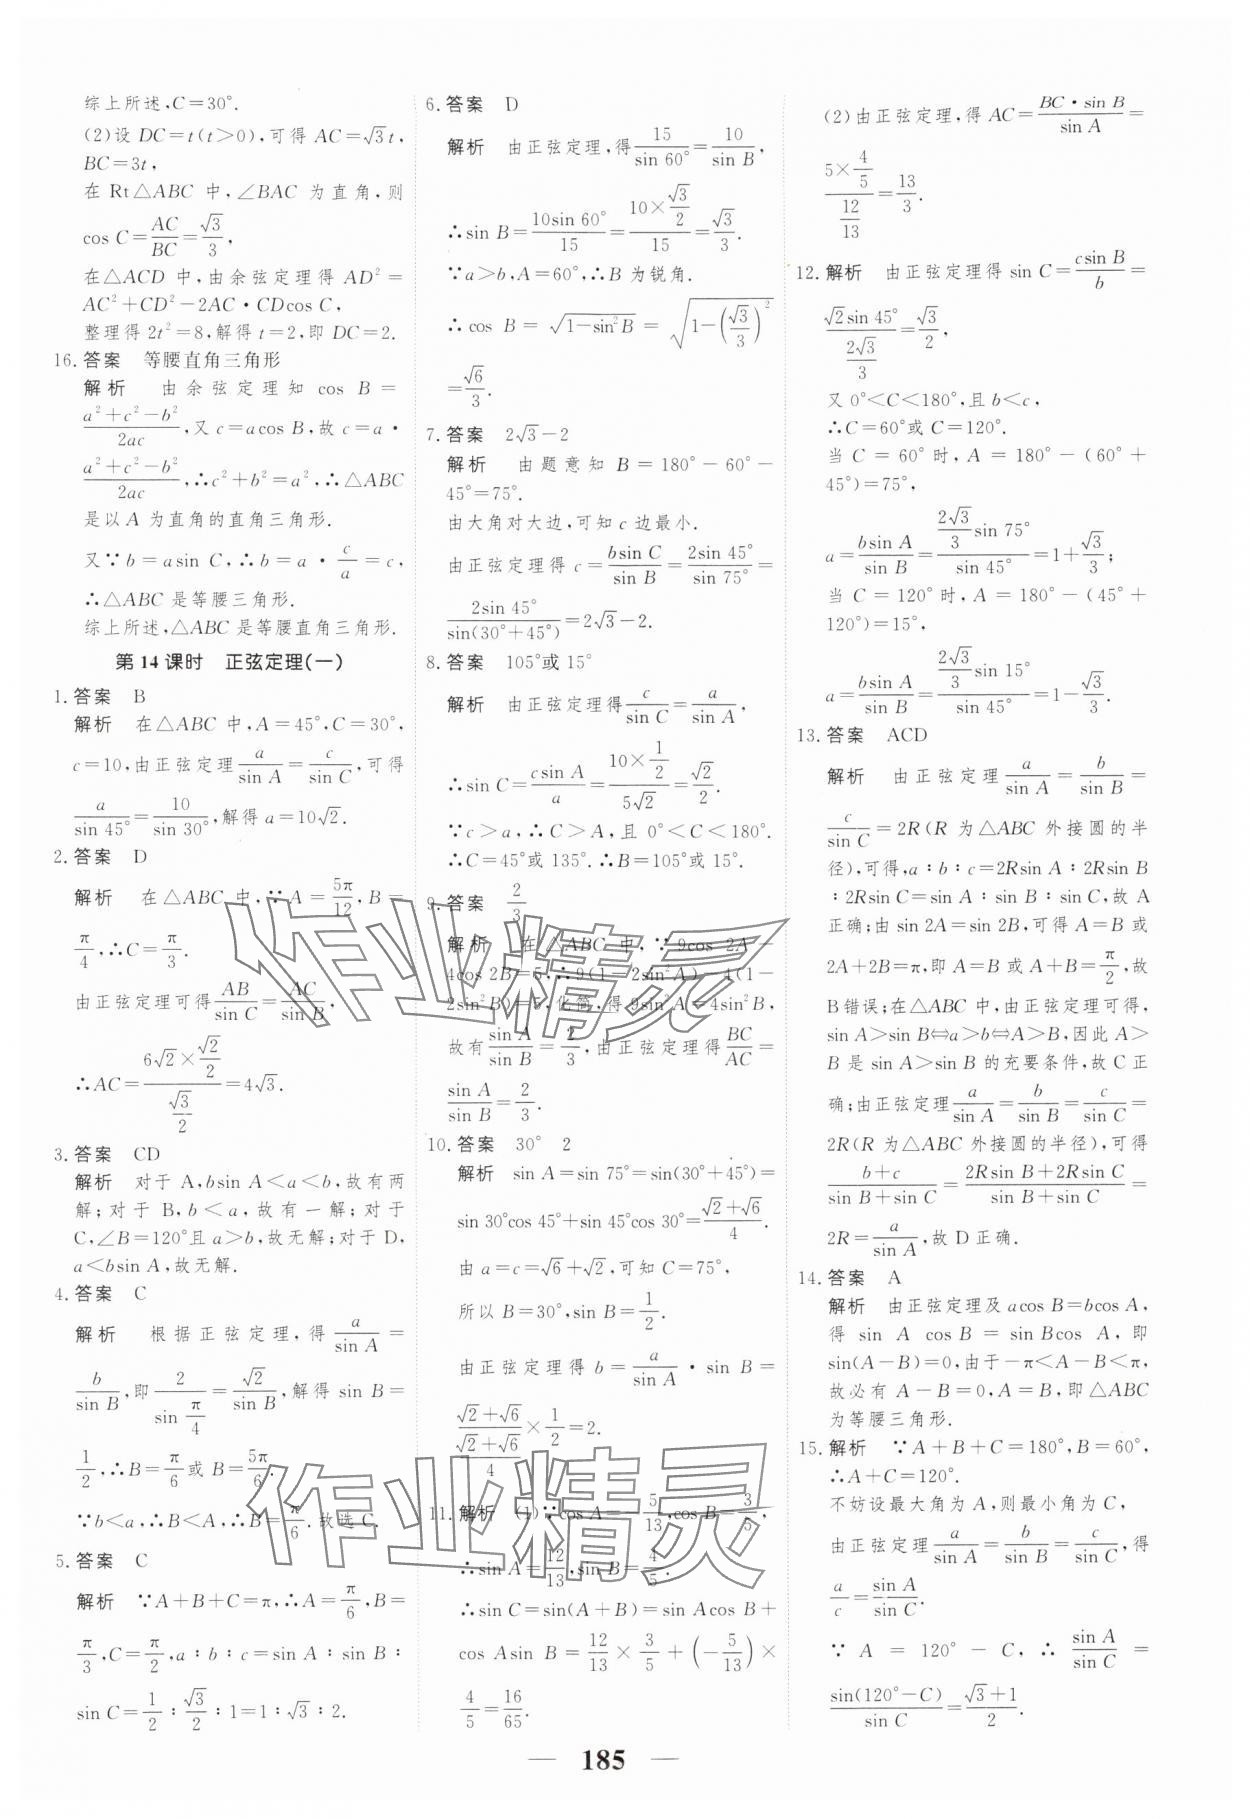 综上所述,C=30°.
(2)设 DC=t(t>0),可得 AC=√3t,
BC=3t,
在 Rt△ABC 中,∠BAC 为直角,则
cos C=AC/BC=√3/3,
在△ACD 中,由余弦定理得 AD²=
AC²+CD²-2AC·CDcos C,
整理得 2t²=8,解得 t=2,即 DC=2.
16.答案 等腰直角三角形
解析 由余弦定理知 cos B=
(a²+c²-b²)/2ac,又 c=acos B,故 c=a·
(a²+c²-b²)/2ac,∴c²+b²=a²,∴△ABC
是以 A 为直角的直角三角形.
又∵b=asin C,∴b=a·c/a=c,
∴△ABC 是等腰三角形.
综上所述,△ABC 是等腰直角三角形.
第 14 课时 正弦定理(一)
1.答案 B
解析 在△ABC 中,A=45°,C=30°,
c=10,由正弦定理 a/sin A=c/sin C,可得
a/sin 45°=10/sin 30°,解得 a=10√2.
2.答案 D
解析 在△ABC 中,∵A=5π/12,B=
π/4,∴C=π/3.
由正弦定理可得 AB/sin C=AC/sin B,
∴AC=(6√2×√2/2)/(√3/2)=4√3.
3.答案 CD
解析 对于 A,bsin A<a<b,故有两
解;对于 B,b<a,故有一解;对于
C,∠B=120°且 a>b,故无解;对于 D,
a<bsin A,故无解.
4.答案 C
解析 根据正弦定理,得 a/sin A=
b/sin B,即 2/sin π/4=√2/sin B,解得 sin B=
1/2,∴B=π/6或 B=5π/6.
∵b<a,∴B<A,∴B=π/6.故选 C.
5.答案 C
解析 ∵A+B+C=π,∴A=π/6,B=
π/3,C=π/2,a∶b∶c=sin A∶sin B∶
sin C=1/2∶√3/2∶1=1∶√3∶2.
6.答案 D
解析 由正弦定理,得 15/sin 60°=10/sin B,
∴sin B=10sin 60°/15=(10×√3/2)/15=√3/3.
∵a>b,A=60°,∴B 为锐角.
∴cos B=√(1-sin²B)=√(1-(√3/3)²)
=√6/3.
7.答案 2√3-2
解析 由题意知 B=180°-60°-
45°=75°.
由大角对大边,可知 c 边最小.
由正弦定理得 c=bsin C/sin B=2sin 45°/sin 75°=
2sin 45°/sin(30°+45°)=2√3-2.
8.答案 105°或 15°
解析 由正弦定理得 c/sin C=a/sin A,
∴sin C=csin A/a=(10×1/2)/5√2=√2/2.
∵c>a,∴C>A,且 0°<C<180°.
∴C=45°或 135°.∴B=105°或 15°.
9.答案 2/3
解析 在△ABC 中,∵9cos 2A-
4cos 2B=5,∴9(1-2sin²A)-4(1-
2sin²B)=5,化简,得 9sin²A=4sin²B,
故有 sin A/sin B=2/3,由正弦定理得 BC/AC=
sin A/sin B=2/3.
10.答案 30° 2
解析 sin A=sin 75°=sin(30°+45°)=
sin 30°cos 45°+sin 45°cos 30°=(√2+√6)/4.
由 a=c=√6+√2,可知 C=75°,
所以 B=30°,sin B=1/2.
由正弦定理得 b=a/sin A·sin B=
(√2+√6)/((√2+√6)/4)×1/2=2.
11.解析 (1)∵cos A=-5/13,cos B=3/5,
∴sin A=12/13,sin B=4/5.
∴sin C=sin(A+B)=sin Acos B+
cos Asin B=12/13×3/5+(-5/13)×
4/5=16/65.
(2)由正弦定理,得 AC=BC·sin B/sin A=
(5×4/5)/(12/13)=13/3.
12.解析 由正弦定理得 sin C=csin B/b=
√2sin 45°/(2√3/3)=√3/2,
又 0°<C<180°,且 b<c,
∴C=60°或 C=120°.
当 C=60°时,A=180°-(60°+
45°)=75°,
a=bsin A/sin B=(2√3/3 sin 75°)/sin 45°=1+√3/3;
当 C=120°时,A=180°-(45°+
120°)=15°,
a=bsin A/sin B=(2√3/3 sin 15°)/sin 45°=1-√3/3.
13.答案 ACD
解析 由正弦定理 a/sin A=b/sin B=
c/sin C=2R(R 为△ABC 外接圆的半
径),可得,a∶b∶c=2Rsin A∶2Rsin B
∶2Rsin C=sin A∶sin B∶sin C,故 A
正确;由 sin 2A=sin 2B,可得 A=B 或
2A+2B=π,即 A=B 或 A+B=π/2,故
B 错误;在△ABC 中,由正弦定理可得,
sin A>sin B⇔a>b⇔A>B,因此 A>
B 是 sin A>sin B 的充要条件,故 C 正
确;由正弦定理 a/sin A=b/sin B=c/sin C=
2R(R 为△ABC 外接圆的半径),可得
(b+c)/(sin B+sin C)=(2Rsin B+2Rsin C)/(sin B+sin C)=
2R=a/sin A,故 D 正确.
14.答案 A
解析 由正弦定理及 acos B=bcos A,
得 sin A cos B=sin Bcos A,即
sin(A-B)=0,由于-π<A-B<π,
故必有 A-B=0,A=B,即△ABC
为等腰三角形.
15.解析 ∵A+B+C=180°,B=60°,
∴A+C=120°.
不妨设最大角为 A,则最小角为 C,
由正弦定理 a/sin A=b/sin B=c/sin C,得
a/c=sin A/sin C.
∵A=120°-C,∴sin A/sin C=
sin(120°-C)/sin C=(√3+1)/2.
作业精灵
作业精灵
— 185 —